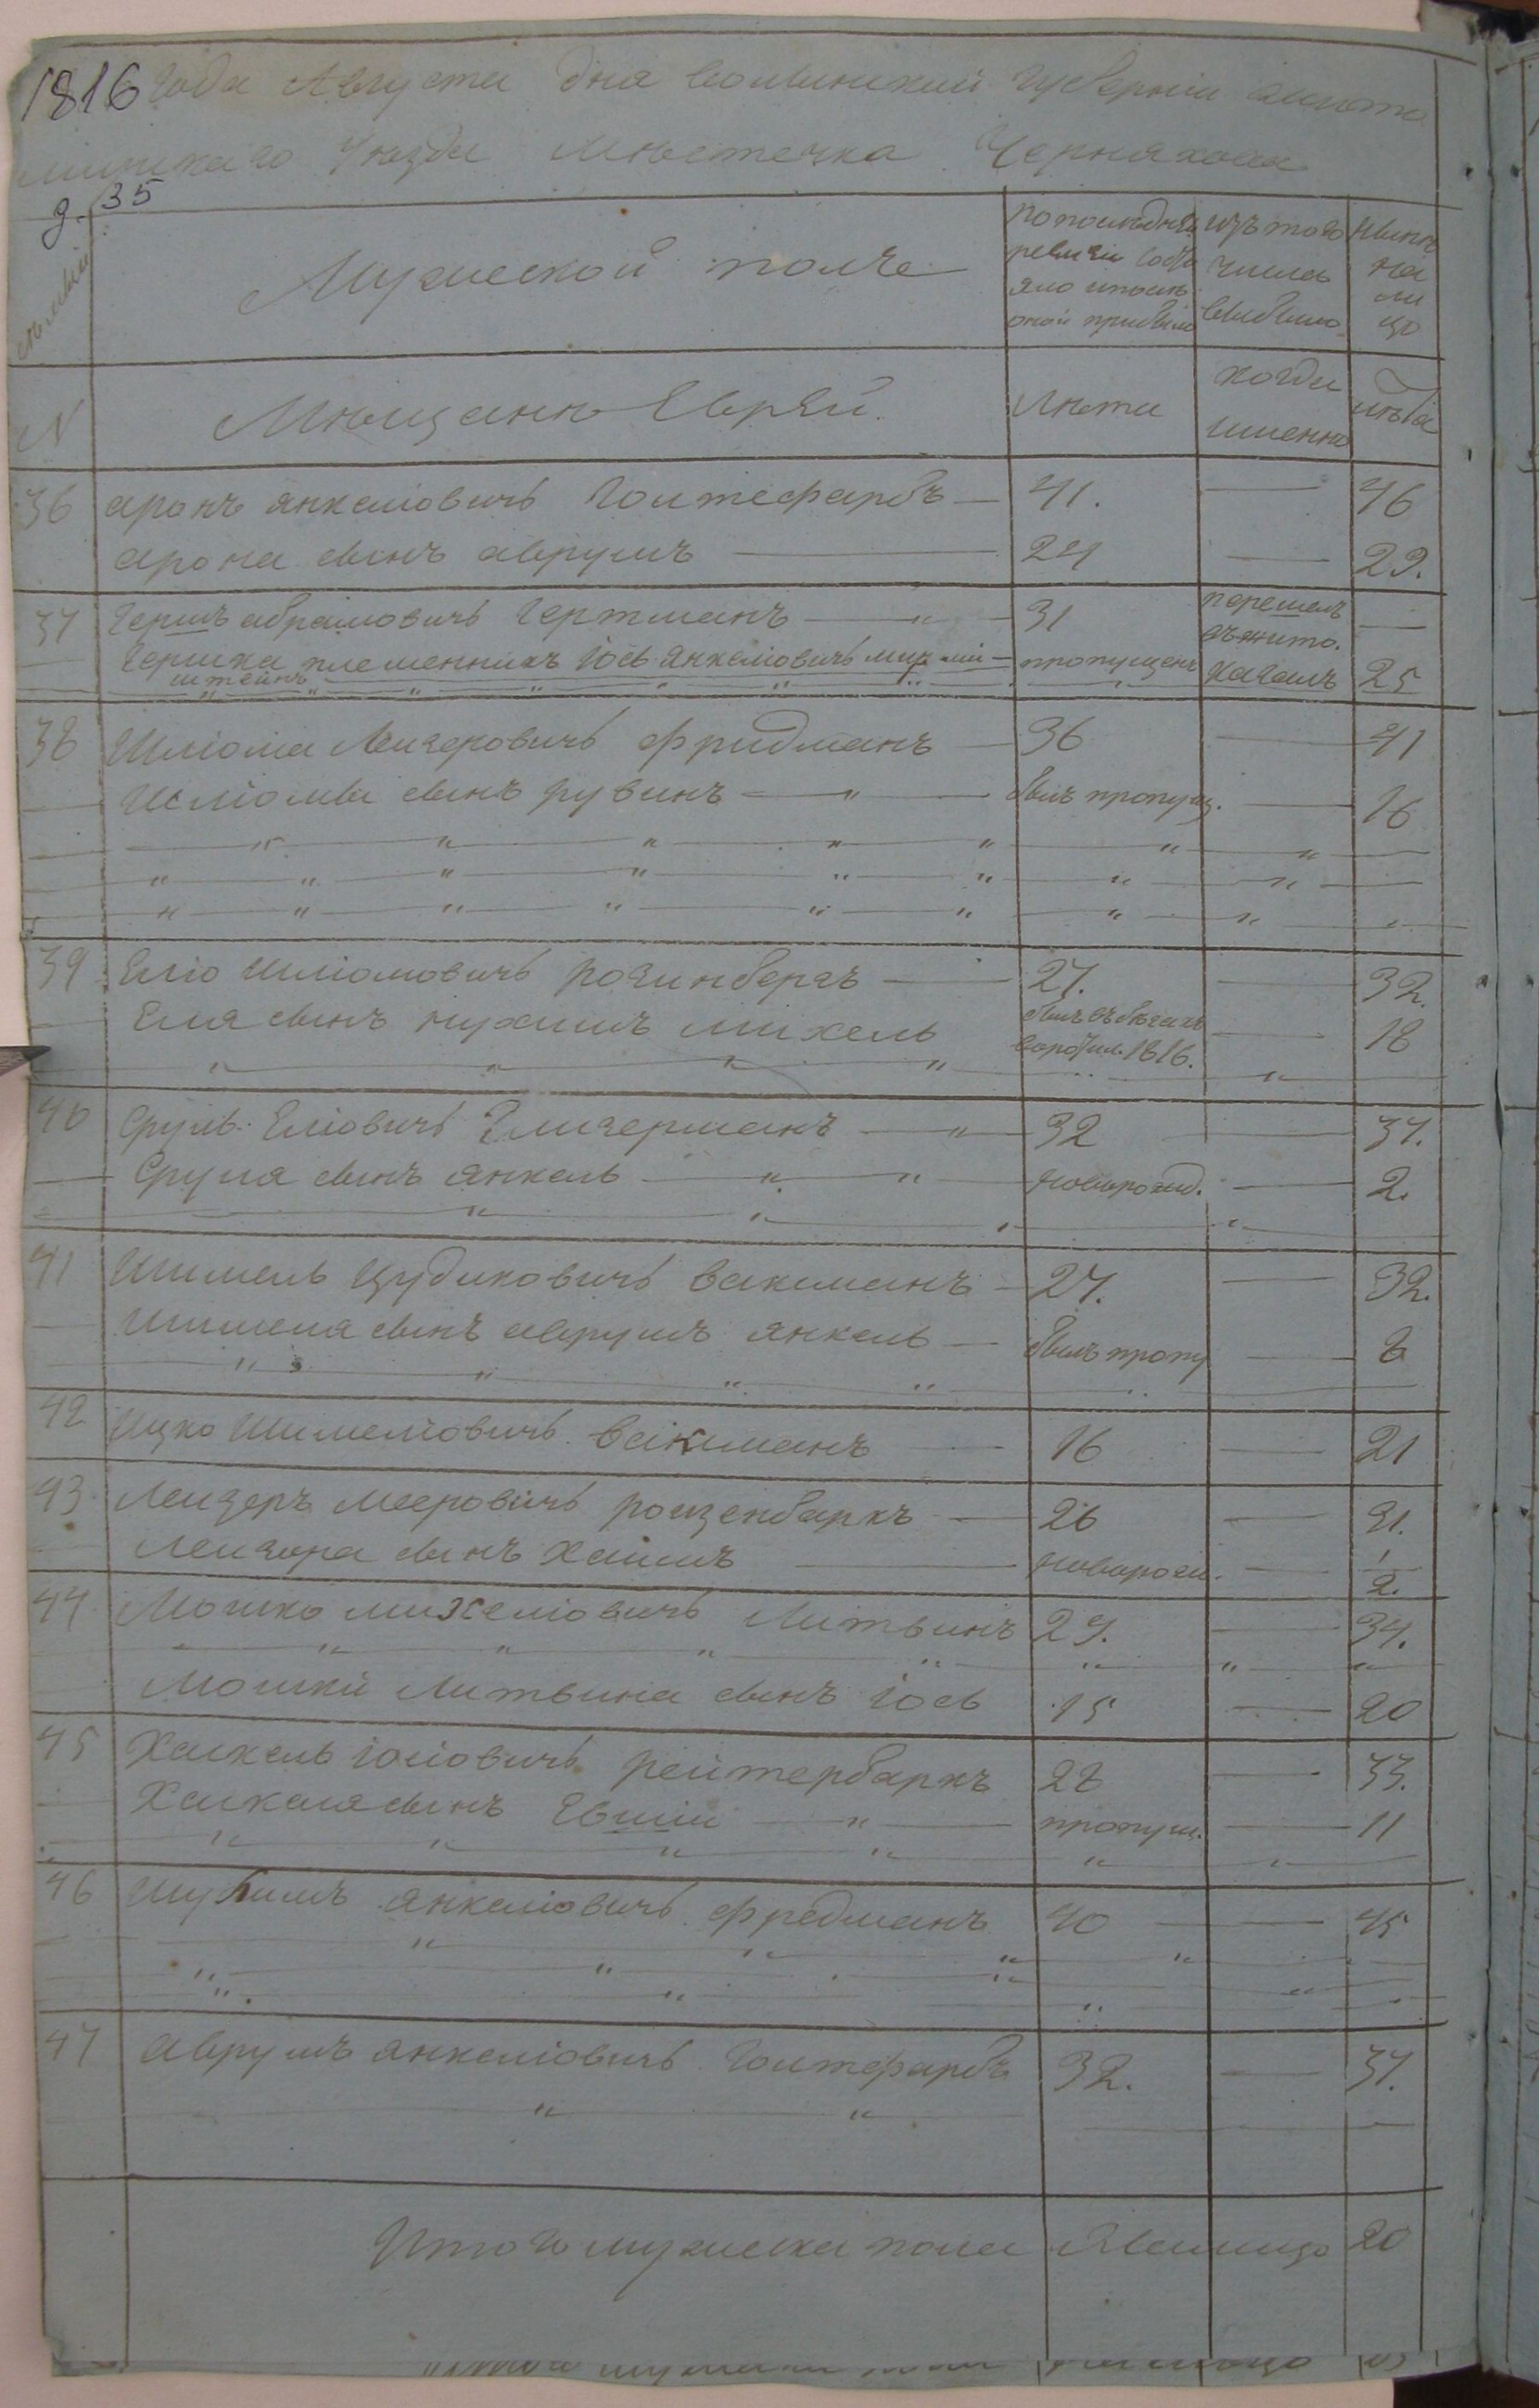 1816 года Августа дня волынский губерніи житто
мирскаго уюзда мюстечка Черняхова
д. 35
семьи
Мужеской полъ
по последней ревизіи состо яло и после оной прибыло
изъ того числа выбыло
ныне на ли цо
N
Мющане Еврей.
Люта
когда именно
люта
36 аронъ янкеліовичъГолтсфарбъ — 41. — 46
арона сынъ аврумъ — 24 — 29.
37 Гершъ абрамовичъ Гертманъ — 31 перешелъ въ жито. —
Гершка племенникъ Іось янкеліовичъ — пропущенъ кагалъ 25
штейнъ
38 Шліома Лейзеровичъ фридманъ — 36 — 41
Шліомы сынъ рувинъ — былъ пропущ. — 16
39 Еліо шліомовичъ розинбергъ — 27. — 32.
Еля сынъ нухимъ михель былъ въ бегахъ воротил. 1816. — 18
40 Сруль Еліовичъ Глизерманъ — 32 — 37.
Сруля сынъ янкель — новорожд. — 2.
41 Шимель Цудиковичъ вакманъ — 27. — 32.
Шимеля сынъ аврумъ янкель — былъ пропу — 8
42 Ицко Шимеліовичъ вакманъ — 16 — 21
43 Лейзеръ мееровичъ розенбаркъ — 26 — 31.
Лейзора сынъ Хаимъ — новорожд. — 1/2.
44 Мошко михеліовичъ Литвинъ 29. — 34.
Мошки Литвина сынъ Іось 15 — 20
45 Хаскель Іосіовичъ рейтербаркъ 28 — 33.
Хаскеля сынъ Евшій — пропущ. — 11
46 янкеліовичъ фредманъ 40 — 45
47 аврумъ янкеліовичъ Голтсфарбъ 32. — 37.
Итого мужеска пола налицо 20